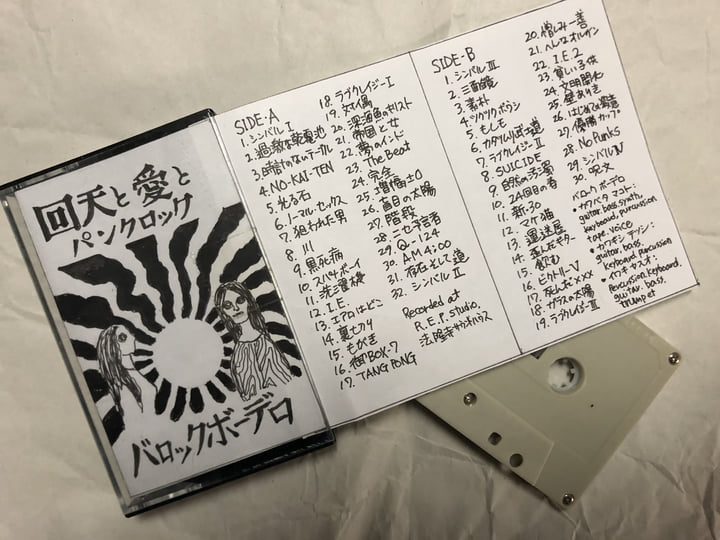 回天と愛と
パンクロック
バロックボーデロ
SIDE-A
1. シンバル I
2. 過激な乾電池
3. 時計のないテーブル
4. NO-KAI-TEN
5. 光る石
6. ノーマル・セックス
7. 狙われた男
8. 川
9. 黒死病
10. スパイボーイ
11. 洗濯機
12. I.E.
13. エアロはどこ
14. 裏切り
15. もがき
16. 街BOX-7
17. TANG PONG
18. ラブクレイジー I
19. 対偶
20. 深酒色のキリスト
21. 帝国と女
22. 夢のインド
23. The Beat
24. 完全
25. 増幅士O
26. 盲目の太陽
27. 階段
28. ニセ予言者
29. @-124
30. AM 4:00
31. 死体として道
32. シンバル II
Recorded at
R.E.P. studio.
法隆寺サウンドハウス
SIDE-B
1. シンバル III
2. 三面鏡
3. 素朴
4. ツクツクボウシ
5. もしモ
6. カタルリポ王道
7. ラブクレイジー II
8. SUICIDE
9. 自然の汚濁
10. 24回目の春
11. 新.30
12. マイク猫
13. 運送屋
14. 歪んだギター
15. 飲む
16. ビクトリーV
17. 死んだxxx
18. ガラスの太陽
19. ラブクレイジー III
20. 憎しみ一善
21. へんなオルガン
22. I.E.2
23. 貧しい子供
24. 文明開化
25. 壁ありき
26. はじめての殺意
27. 優勝カップ
28. No Punks
29. シンバル IV
30. 呪文
バロックボーデロ
・カワバタマコト:
guitar, bass, synth,
keyboard, percussion
tape, voice
・カワギシテツシ:
guitar, bass,
keyboard, percussion
・イワキヤスオ:
percussion, keyboard,
guitar, bass,
trumpet